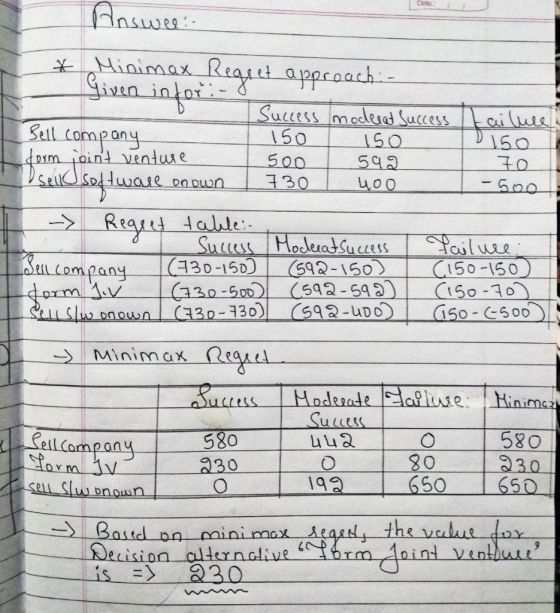 Answer:-
* Minimax Regret approach:-
Given infor:-
Success moderat Success failure
Sell company 150 150 150
form joint venture 500 592 70
sell software on own 730 400 -500
-> Regret table:-
Success Moderat Success Failure:
Sell company (730-150) (592-150) (150-150)
form J.V (730-500) (592-592) (150-70)
Sell S/w on own (730-730) (592-400) (150-(-500)
-> Minimax Regret.
Success Moderate Success Failure: Minimax
Sell company 580 442 0 580
Form JV 230 0 80 230
sell S/w on own 0 192 650 650
-> Based on minimax regret, the value for
Decision alternative "Form Joint venture"
is => 230